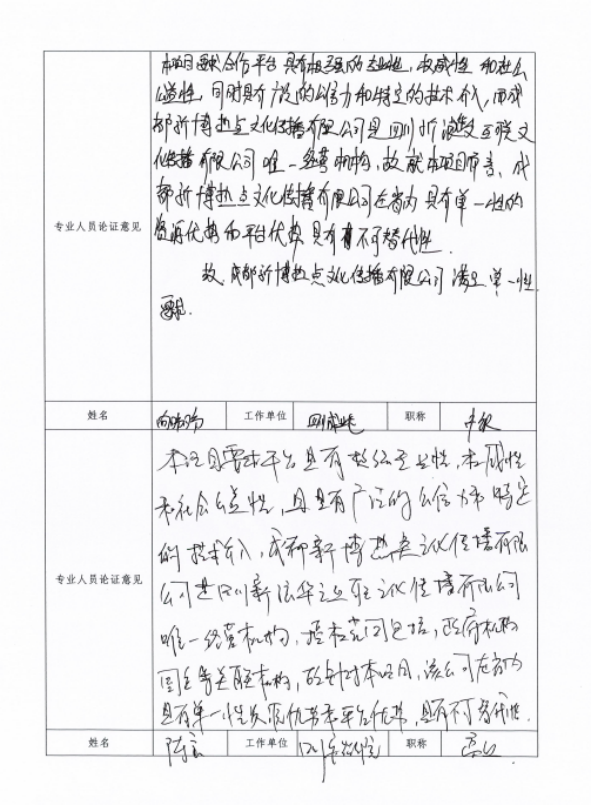 本项目要求合作平台具有极强的专业性，权威性和社会
公益性，同时具有广泛的公信力和特定的技术介入，而成
都新博热点文化传播有限公司是四川新浪互联文
化传播有限公司唯一经营机构，故就本项目而言，成
都新博热点文化传播有限公司在省内具有单一性的
资源优势和平台优势具有不可替代性．
故，成都新博热点文化传播有限公司满足单一性
要求．
专业人员论证意见
姓名 工作单位 职称 中级
本项目要求平台具有极强专业性，权威性
和社会公益性，且具有广泛的公信力和特定
的技术介入，成都新博热点文化传播有限
公司是四川新浪 互联文化传播有限公司
唯一经营机构，授权范围包括，政府机构
机构，故针对本项目，该公司在省内
具有单一性资源优势和平台优势，具有不可替代性．
专业人员论证意见
姓名 陈 工作单位 四川 职称